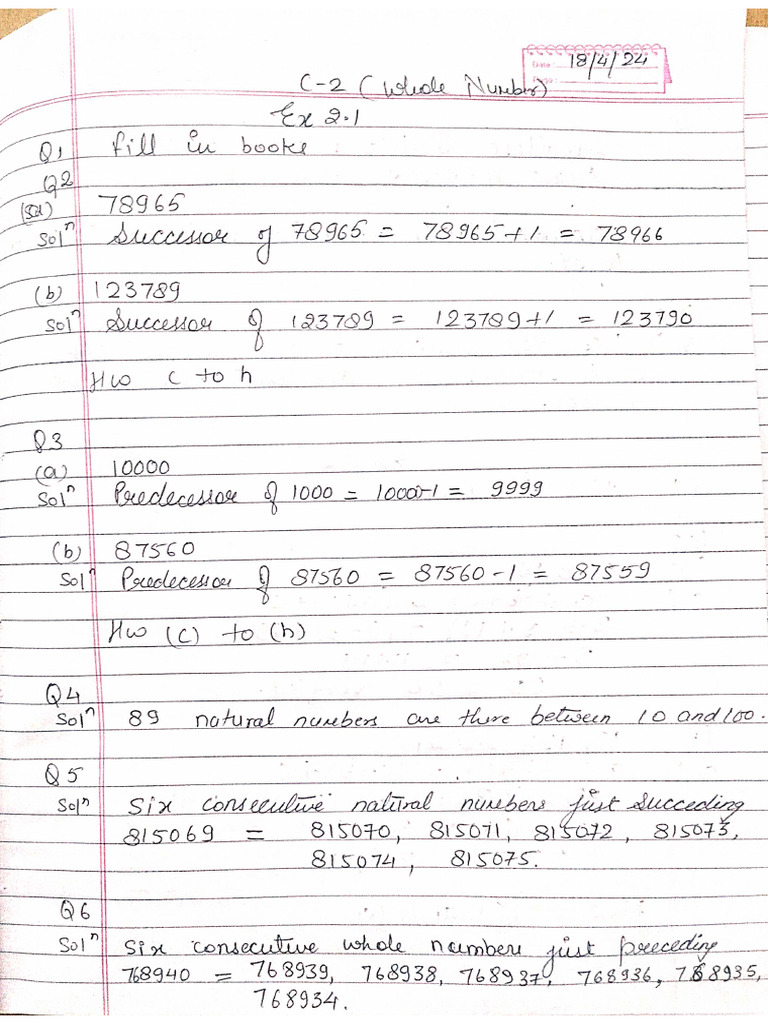 Date: 18/4/24
C-2 (Whole Number)
Ex 2.1
Q1 fill in books
Q2
(a) 78965
Solⁿ Successor of 78965 = 78965+1 = 78966
(b) 123789
Solⁿ Successor of 123789 = 123789+1 = 123790
Hw c to h
Q3
(a) 10000
Solⁿ Predecessor of 1000 = 10000-1 = 9999
(b) 87560
Solⁿ Predecessor of 87560 = 87560-1 = 87559
Hw (c) to (h)
Q4
Solⁿ 89 natural numbers are there between 10 and 100.
Q5
Solⁿ Six consecutive natural numbers just succeding
815069 = 815070, 815071, 815072, 815073,
815074, 815075.
Q6
Solⁿ Six consecutive whole numbers just preceeding
768940 = 768939, 768938, 768937, 768936, 768935,
768934.